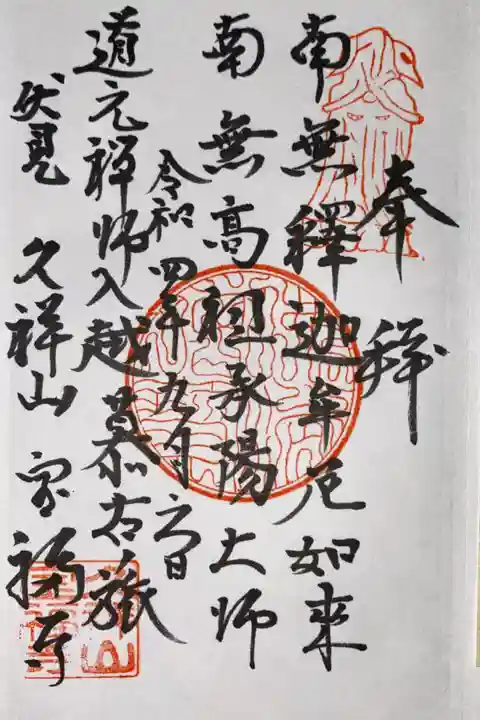 奉拜
南無釋迦牟尼如来
南無高祖承陽大师
令和四年九月六日
道元禅师入越慕古蔵
伏見 久祥山 宝福寺